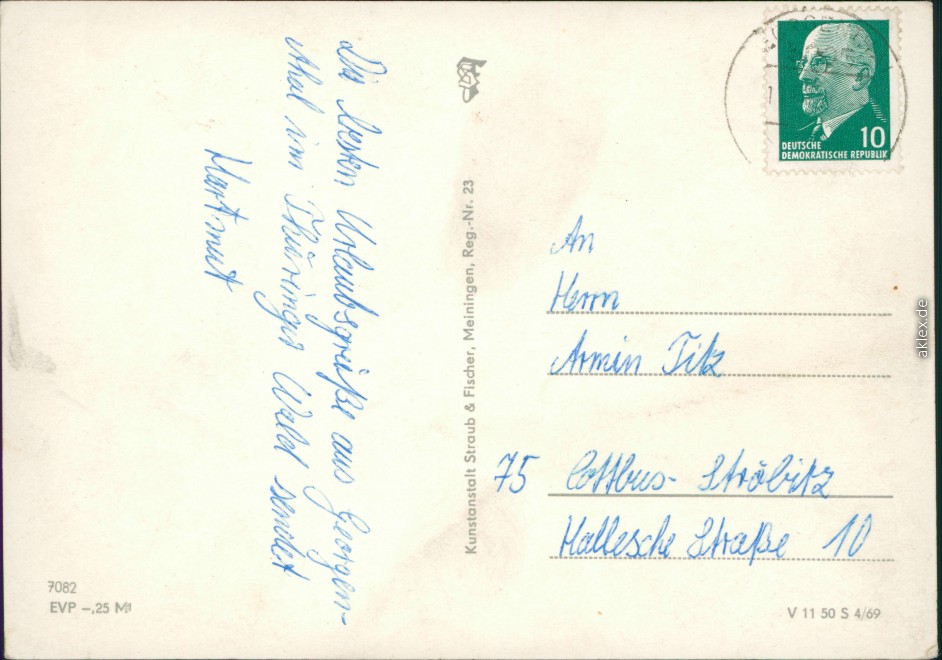 Die besten Urlaubsgrüße aus Georgen-
thal im Thüringer Wald sendet
Hartmut
Kunstanstalt Straub & Fischer, Meiningen, Reg.-Nr. 23
10
DEUTSCHE
DEMOKRATISCHE REPUBLIK
An
Herrn
Armin Titz
75 Cottbus-Ströbitz
Hallesche Straße 10
7082
EVP –,25 M
V 11 50 S 4/69
aklex.de